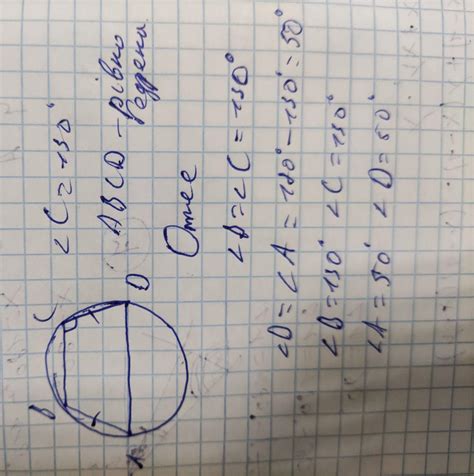 B C
A D
∠C=130°
ABCD - рівно
бедрена
Отже
∠B=∠C=130°
∠D=∠A=180°-130°=50°
∠B=130° ∠C=130°
∠A=50° ∠D=50°